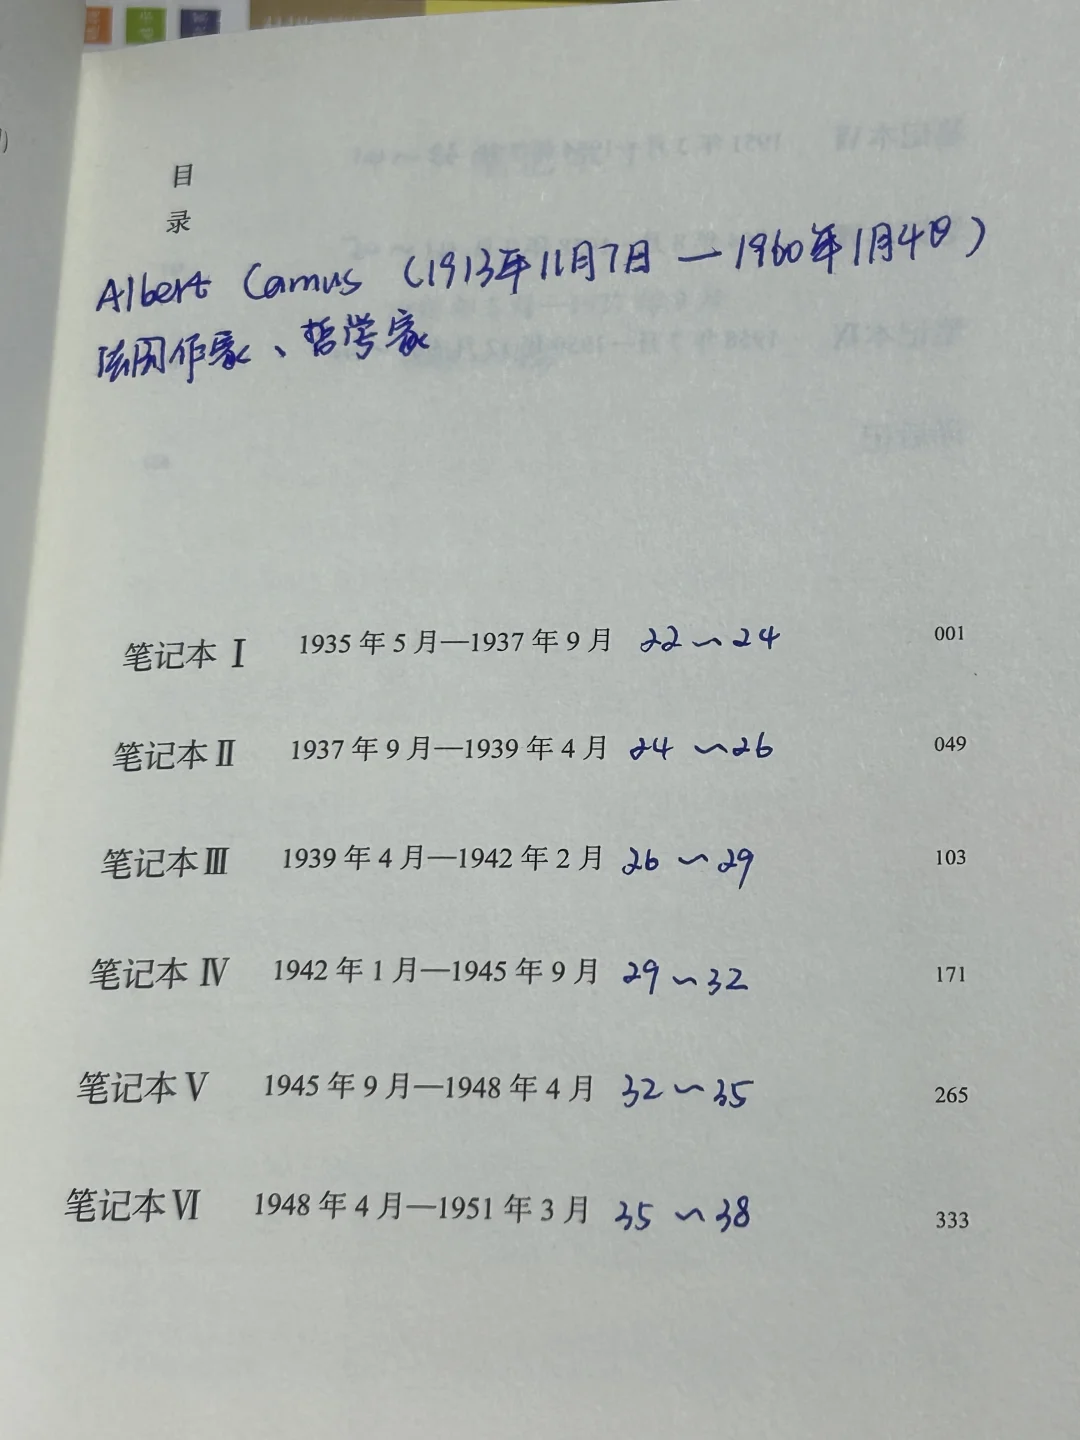 目
录
Albert Camus (1913年11月7日—1960年1月4日)
法国作家、哲学家
笔记本 Ⅰ 1935 年 5 月—1937 年 9 月 22~24 001
笔记本 Ⅱ 1937 年 9 月—1939 年 4 月 24~26 049
笔记本 Ⅲ 1939 年 4 月—1942 年 2 月 26~29 103
笔记本 Ⅳ 1942 年 1 月—1945 年 9 月 29~32 171
笔记本 Ⅴ 1945 年 9 月—1948 年 4 月 32~35 265
笔记本 Ⅵ 1948 年 4 月—1951 年 3 月 35~38 333